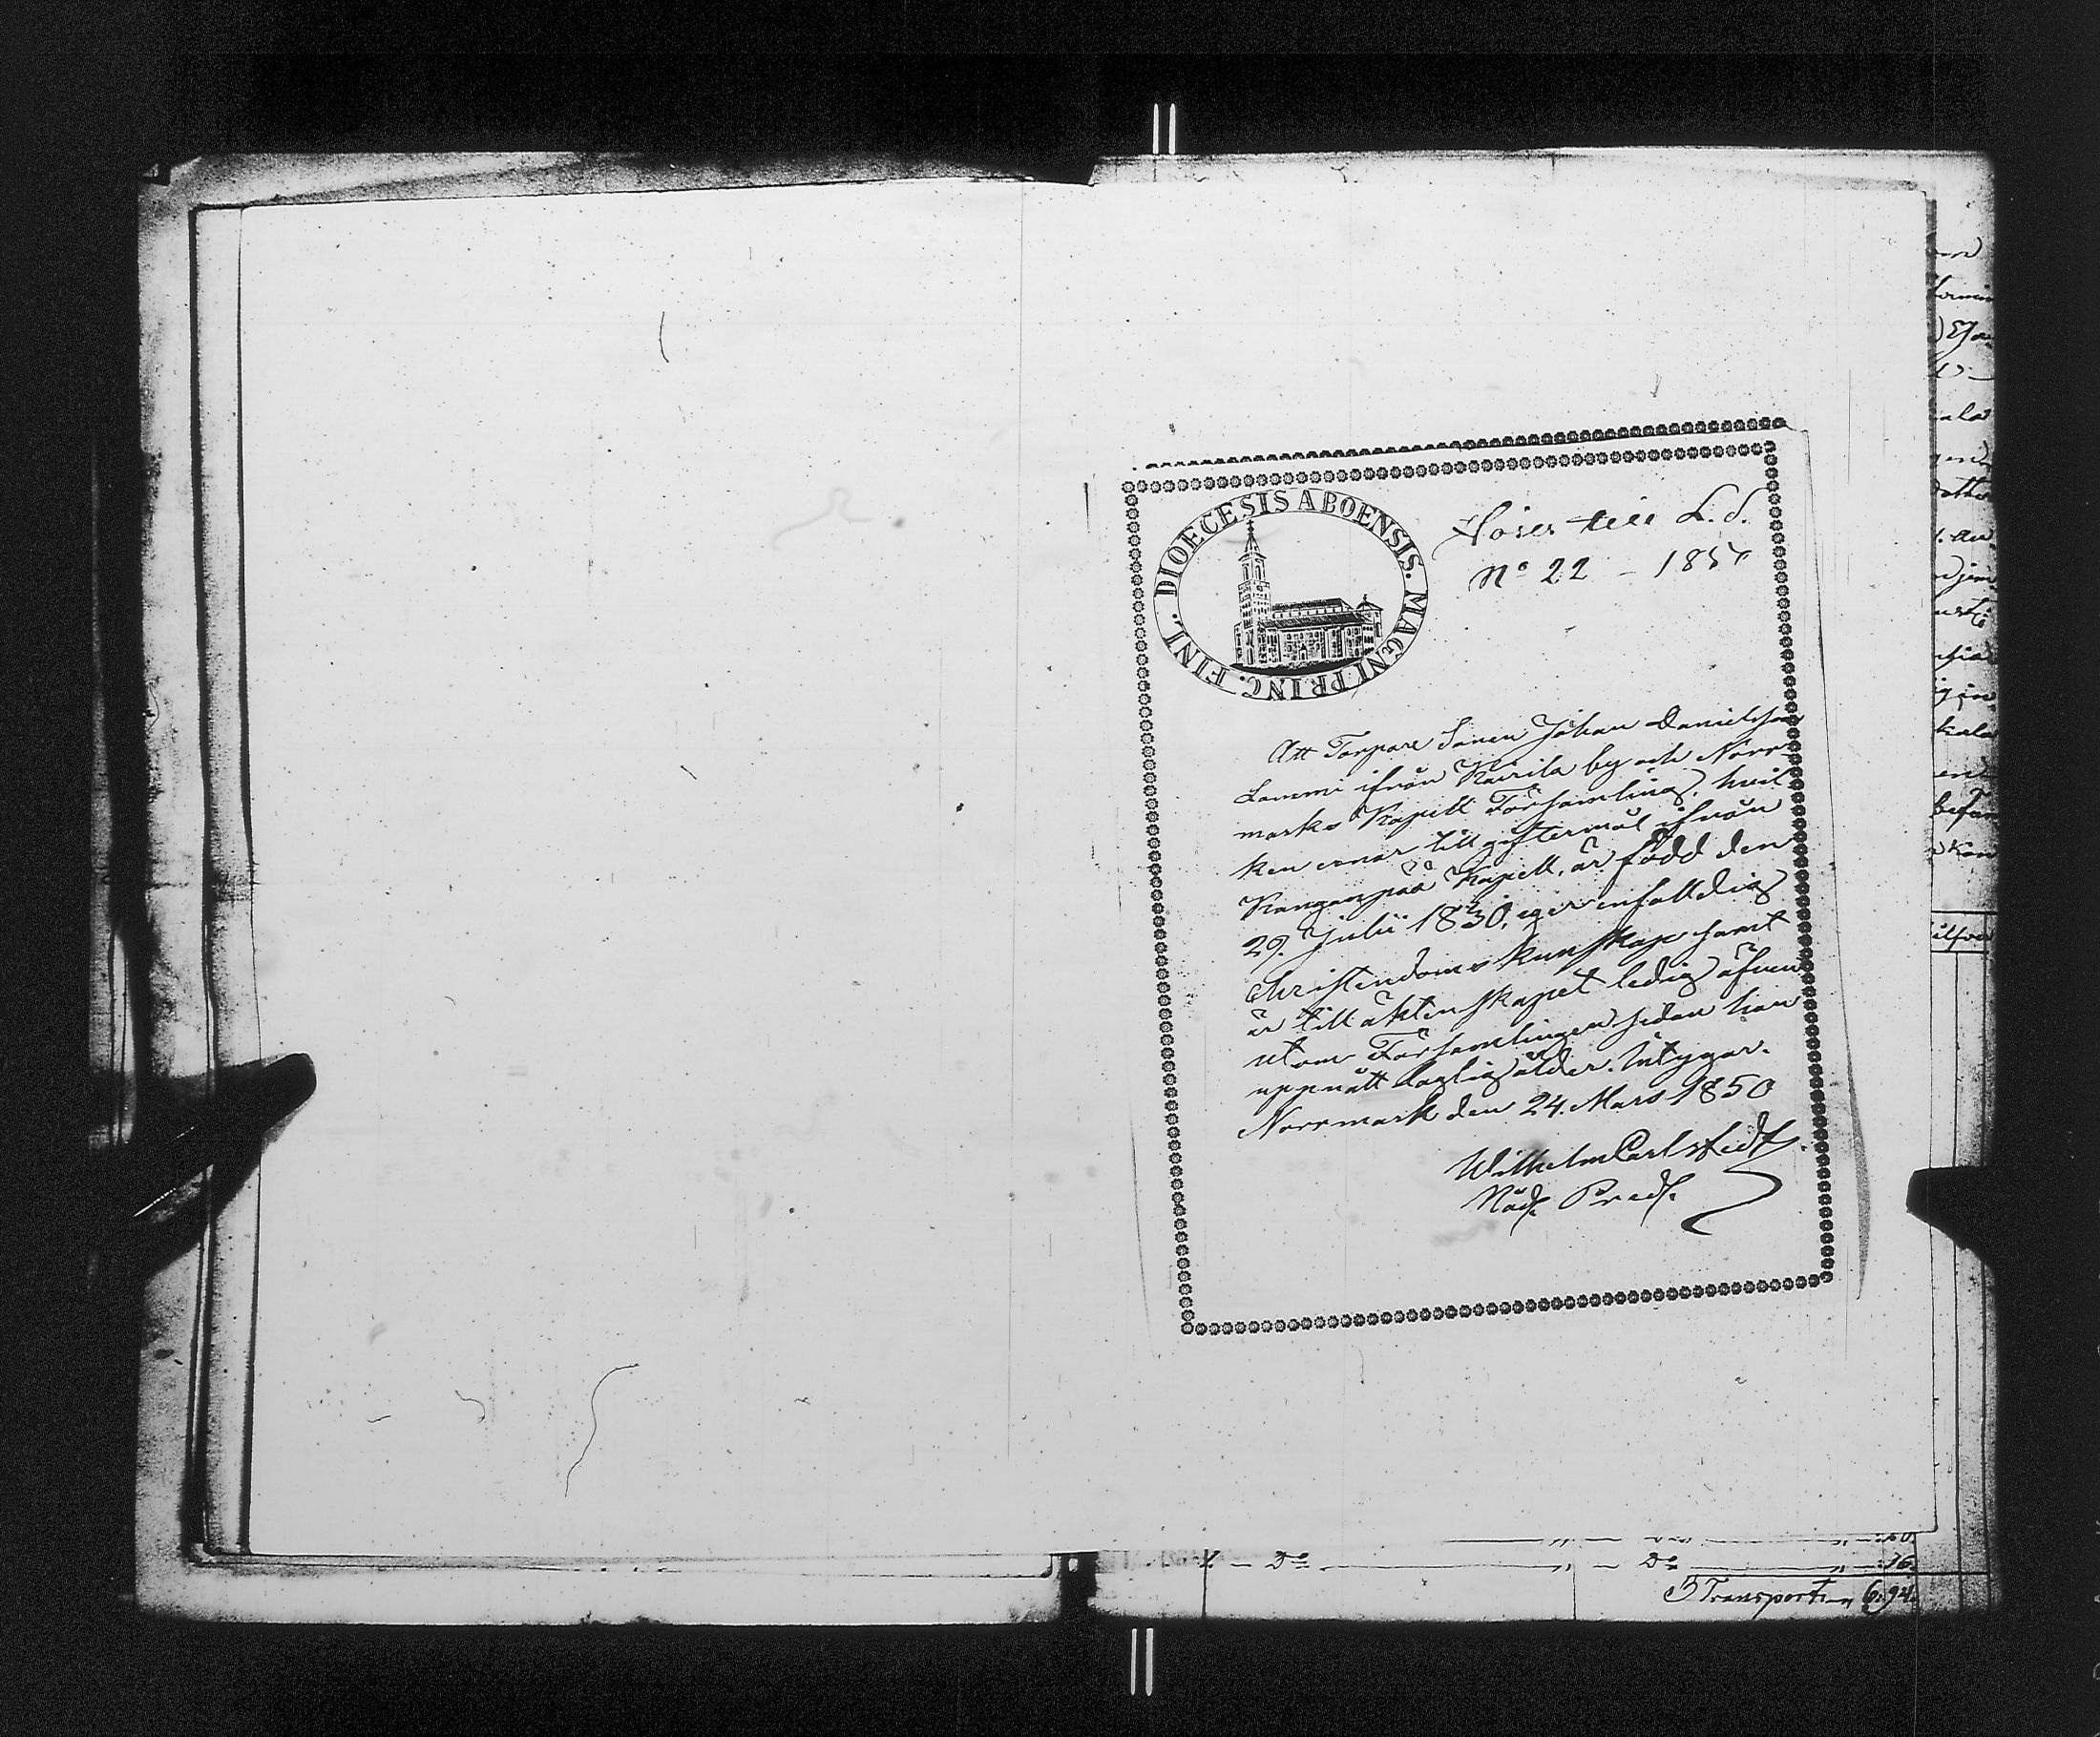 DIOECESIS ABOENSIS. MAGNI PRINC. FINL.
Höres till L. S.
No 22 - 1850
Att Torpare Sonen Johan Danielsson
Lammi ifrån Kairila by och Norr-
marks Kapell Församling, hvil-
ken ernar till giftermål ifrån
Kangarpää Kapell, är född den
29. Julii 1830, eger enfalldig
Christendoms kunskap samt
är till äktenskapet ledig äfven
utom Församlingen sedan han
uppnått laglig ålder. Intygar.
Norrmark den 24. Mars 1850
Wilhelm Carlstedt.
Nåds Preds.
D:o D:o 16.
Transport 6:94.